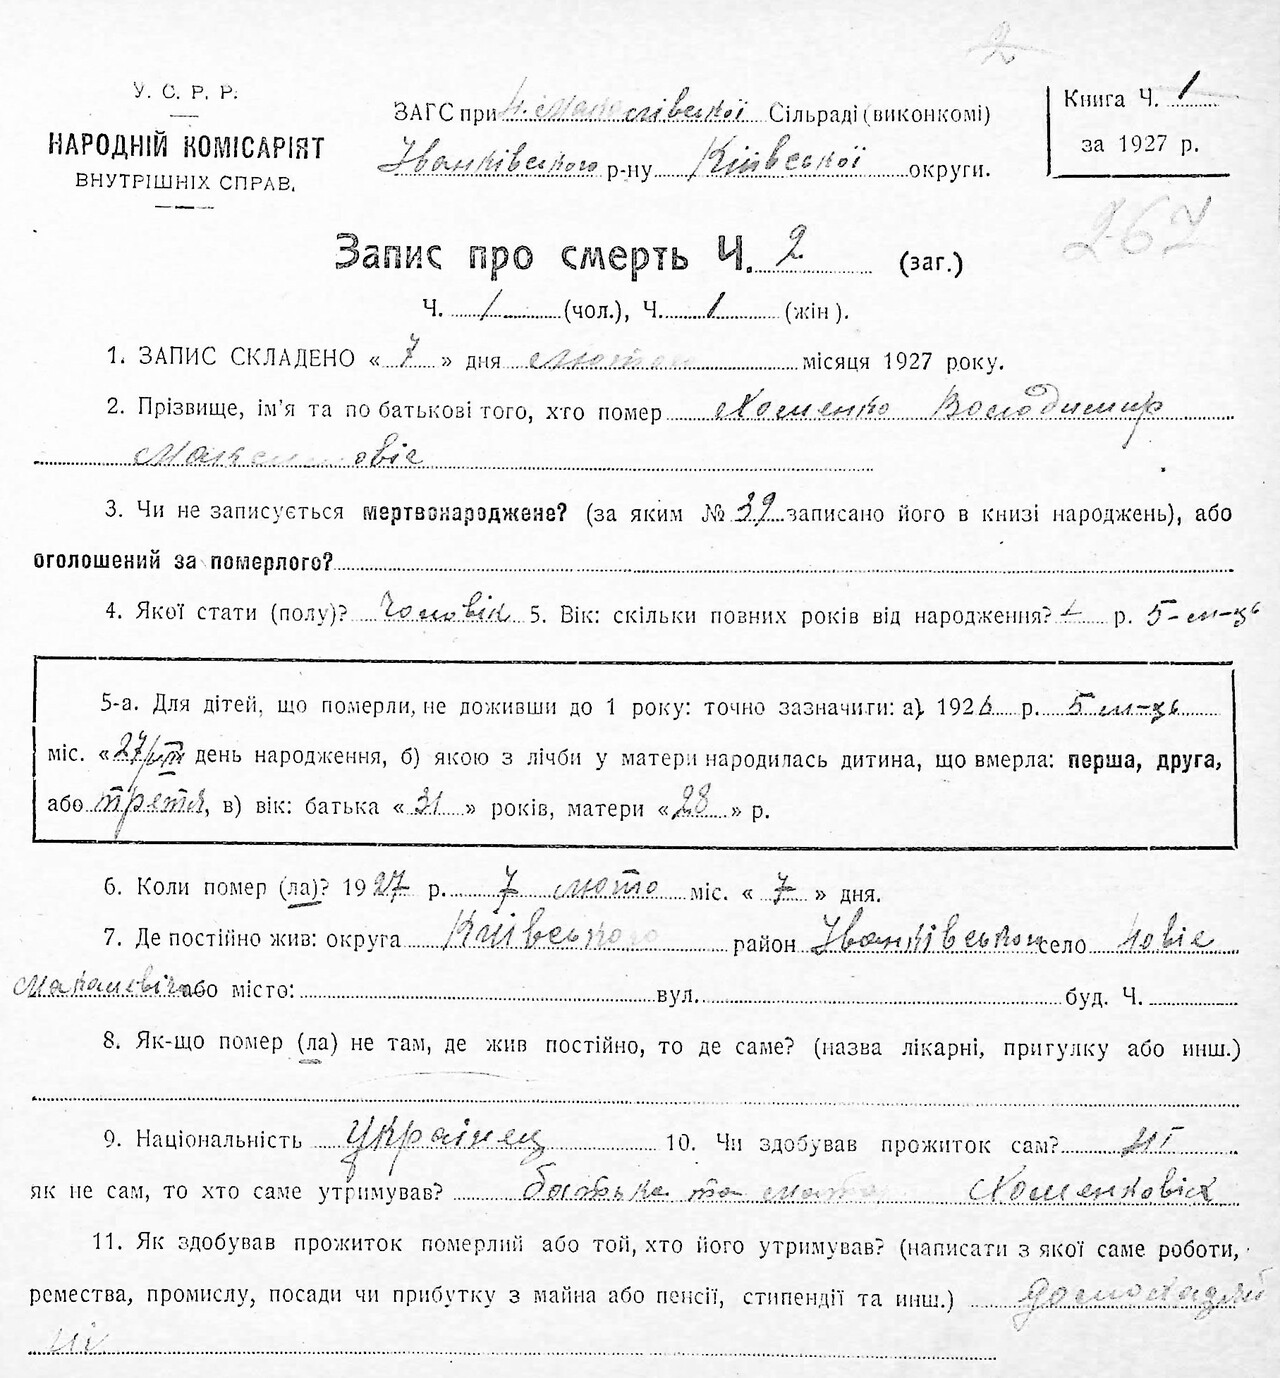 2
У. С. Р. Р.
НАРОДНІЙ КОМІСАРІЯТ
ВНУТРІШНІХ СПРАВ.
ЗАГС при Н. Макалівської Сільраді (виконкомі)
Іванківського р-ну Київської округи.
Книга Ч. 1
за 1927 р.
267
Запис про смерть Ч. 2 (заг.)
Ч. 1 (чол.), Ч. 1 (жін).
1. ЗАПИС СКЛАДЕНО « 7 » дня лютого місяця 1927 року.
2. Прізвище, ім'я та по батькові того, хто помер Хоменко Володимир
Максимовіч
3. Чи не записується мертвонароджене? (за яким № 39 записано його в книзі народжень), або
оголошений за померлого?
4. Якої стати (полу)? Чоловік 5. Вік: скільки повних років від народження? р. 5-м-ць
5-а. Для дітей, що померли, не доживши до 1 року: точно зазначити: а), 1926 р. 5 м-ць
міс. «27/VIII день народження, б) якою з лічби у матери народилась дитина, що вмерла: перша, друга,
або третя, в) вік: батька « 31 » років, матери « 28 » р.
6. Коли помер (ла)? 1927 р. 7 люто міс. « 7 » дня.
7. Де постійно жив: округа Київського район Іванківськом село Новіє
Макалевічі або місто: вул. буд. Ч.
8. Як-що помер (ла) не там, де жив постійно, то де саме? (назва лікарні, пригулку або инш.)
9. Національність Українец 10. Чи здобував прожиток сам? ні
як не сам, то хто саме утримував? батька та мата Хоменковіх
11. Як здобував прожиток померлий або той, хто його утримував? (написати з якої саме роботи,
ремества, промислу, посади чи прибутку з майна або пенсії, стипендії та инш.)